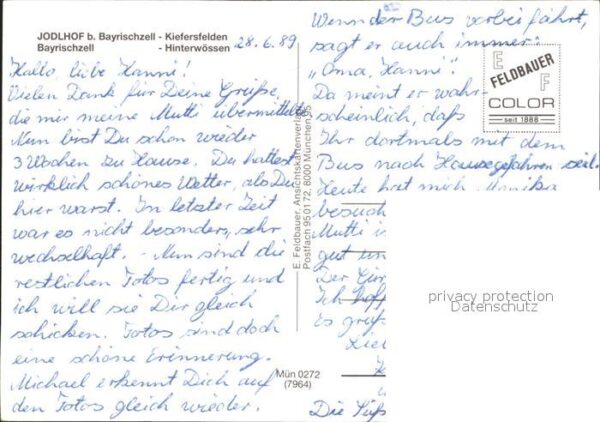 JODLHOF b. Bayrischzell - Kiefersfelden
Bayrischzell - Hinterwössen
28.6.89
Hallo, liebe Hanni!
Vielen Dank für Deine Grüße,
die mir meine Mutti übermittelte.
Nun bist Du schon wieder
3 Wochen zu Hause. Du hattest
wirklich schönes Wetter, als Du
hier warst. In letzter Zeit
war es nicht besonders, sehr
wechselhaft. - Nun sind die
restlichen Fotos fertig und
ich will sie Dir gleich
schicken. Fotos sind doch
eine schöne Erinnerung.
Michael erkennt Dich auf
den Fotos gleich wieder.
E. Feldbauer, Ansichtskartenverlag
Postfach 95 01 72, 8000 München 95
Mün 0272
(7964)
Wenn der Bus vorbei fährt,
sagt er auch immer:
„Oma, Hanni".
Da meint er wahr-
scheinlich, daß
Ihr dortmals mit dem
Bus nach Hause gefahren seid.
Heute hat mich Monika
besuch
Mutti
gut un
Der
Ich hoff
Es grüß
Die Süß
E F
FELDBAUER
COLOR
seit 1888
privacy protection
Datenschutz